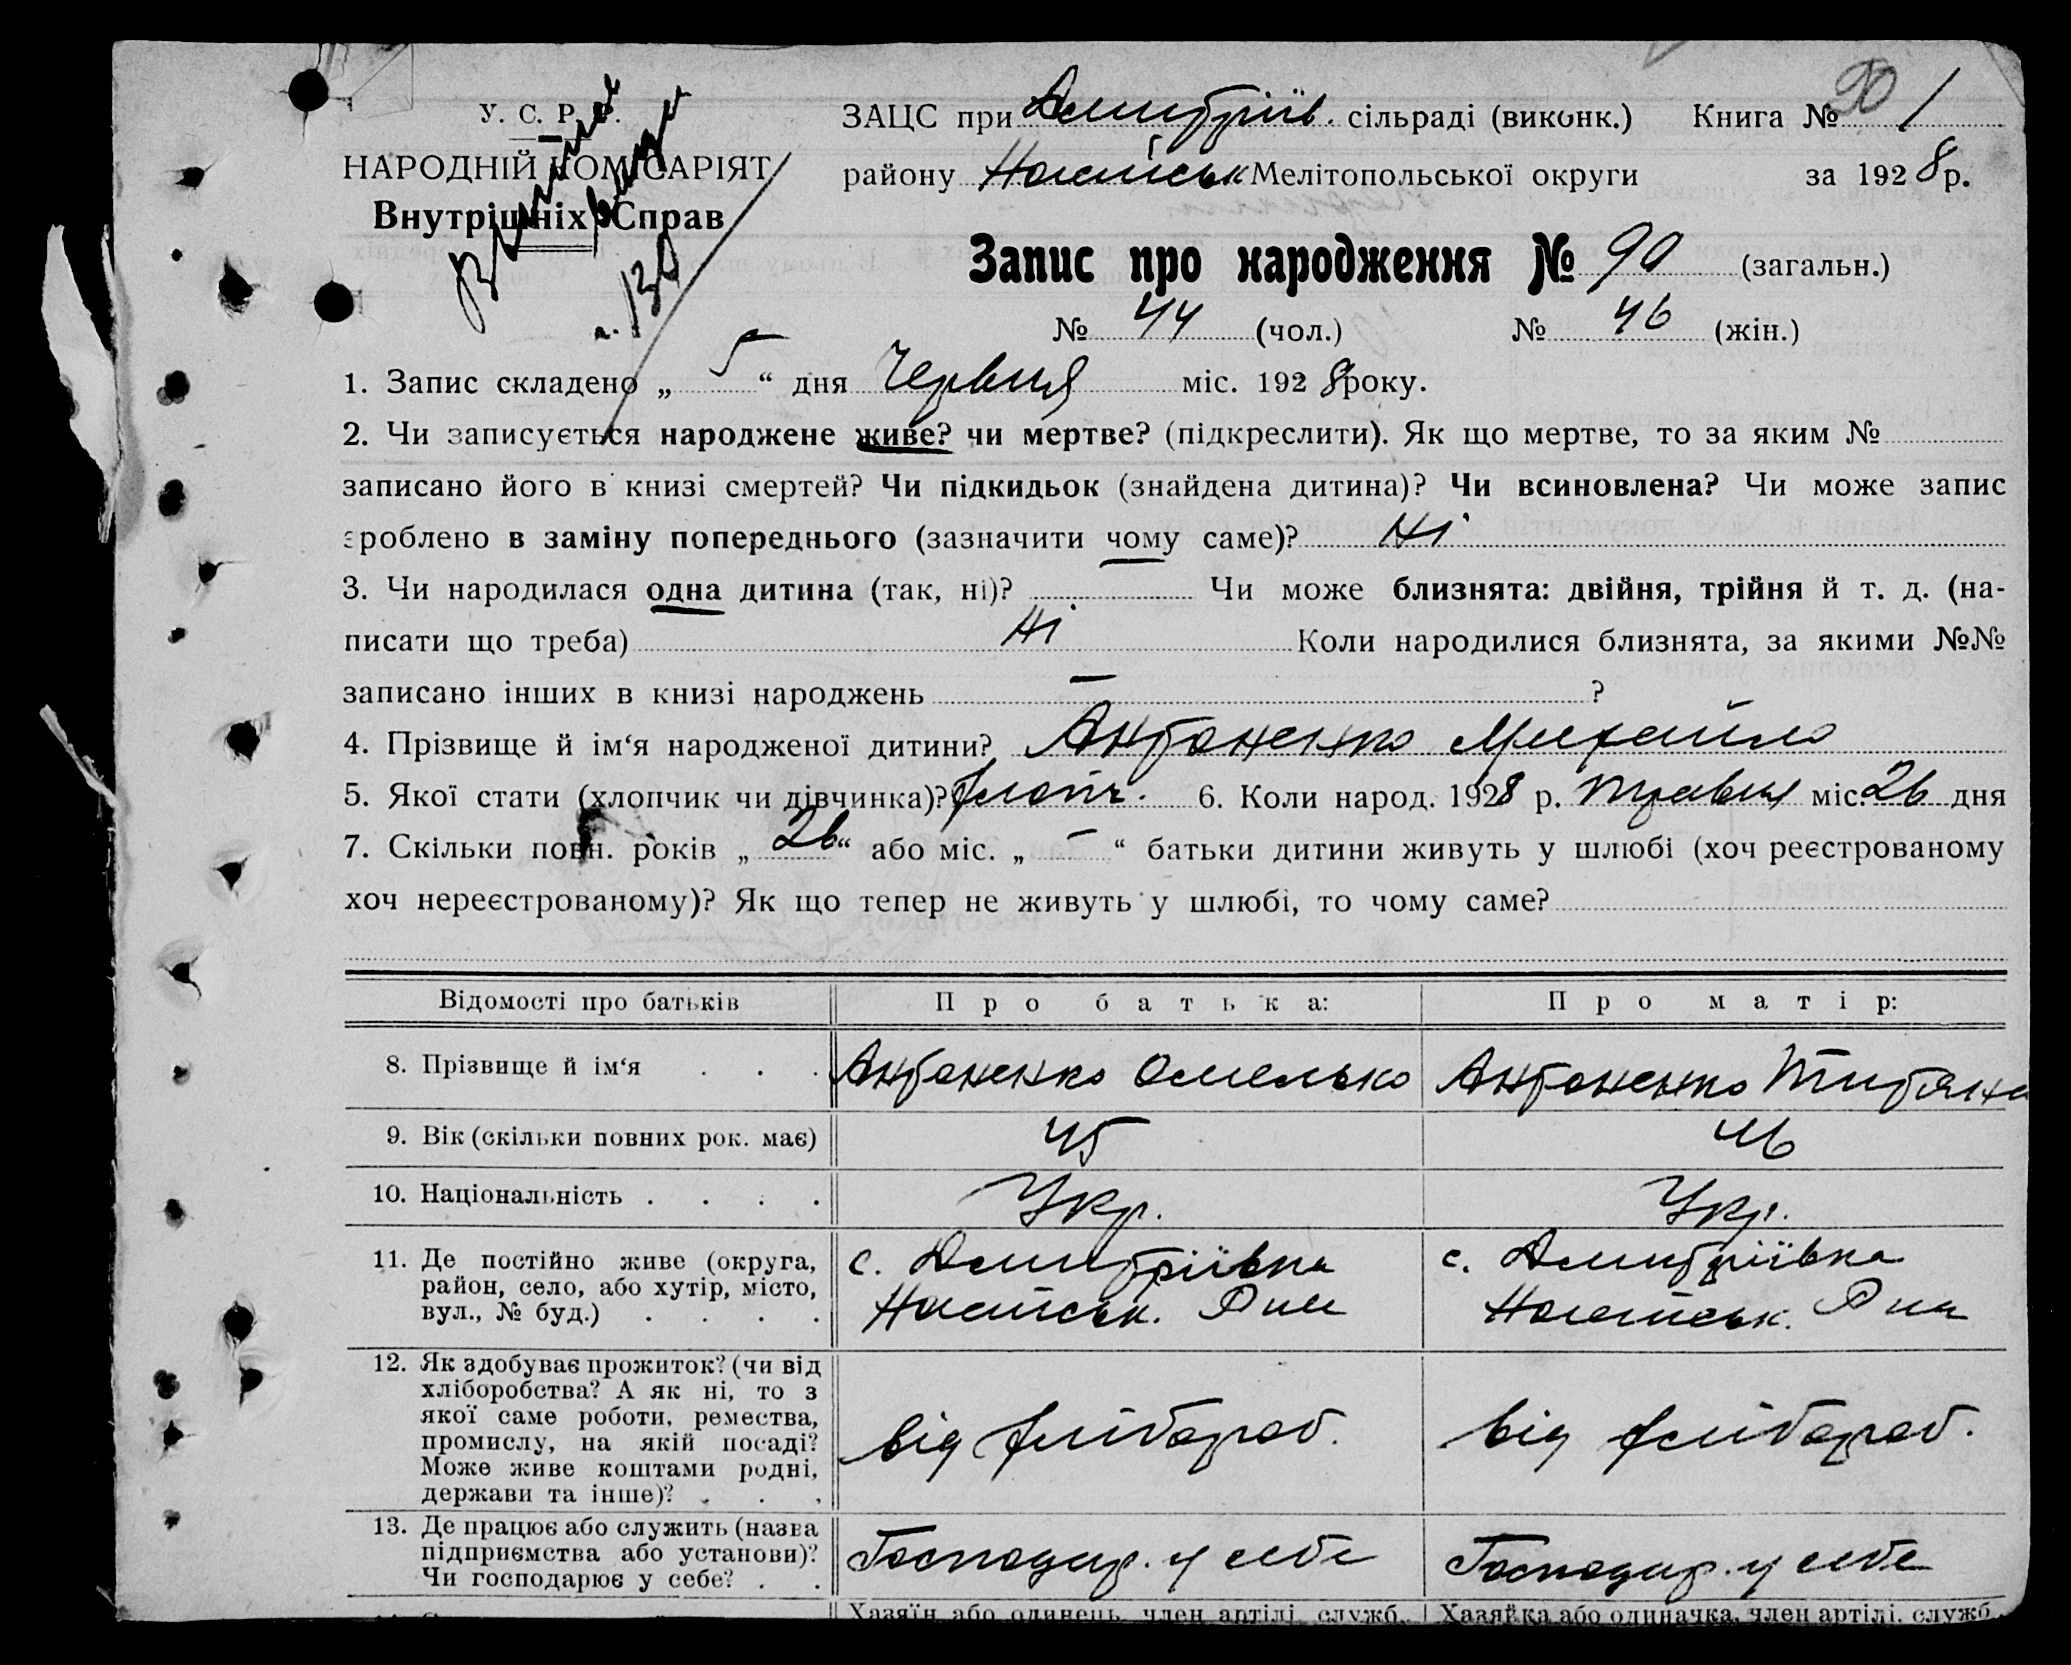 У. С. Р. Р.
НАРОДНІЙ КОМІСАРІЯТ
Внутрішніх Справ
ЗАЦС при Дмитріїв. сільраді (виконк.) Книга № 1
90
району Ногайськ Мелітопольської округи за 1928 р.
Запис про народження № 90 (загальн.)
№ 44 (чол.) № 46 (жін.)
1. Запис складено „ 5 “ дня Червня міс. 1928 року.
2. Чи записується народжене живе? чи мертве? (підкреслити). Як що мертве, то за яким №
записано його в книзі смертей? Чи підкидьок (знайдена дитина)? Чи всиновлена? Чи може запис
зроблено в заміну попереднього (зазначити чому саме)? Ні
3. Чи народилася одна дитина (так, ні)? Чи може близнята: двійня, трійня й т. д. (на-
писати що треба) Ні Коли народилися близнята, за якими №№
записано інших в книзі народжень – ?
4. Прізвище й ім‘я народженої дитини? Антоненко Михайло
5. Якої стати (хлопчик чи дівчинка)? хлопч. 6. Коли народ. 1928 р. травня міс. 26 дня
7. Скільки повн. років „ 26 “ або міс. „ – “ батьки дитини живуть у шлюбі (хоч реєстрованому
хоч нереєстрованому)? Як що тепер не живуть у шлюбі, то чому саме?
Відомості про батьків Про батька: Про матір:
8. Прізвище й ім‘я . . . Антоненко Омелько Антоненко Титяна
9. Вік (скільки повних рок. має) 45 46
10. Національність . . . . Укр. Укр.
11. Де постійно живе (округа,
район, село, або хутір, місто,
вул., № буд.) . . . .
с. Дмитріївка
Ногайськ. Р-ну
с. Дмитріївка
Ногайськ. Р-ну
12. Як здобуває прожиток? (чи від
хліборобства? А як ні, то з
якої саме роботи, ремества,
промислу, на якій посаді?
Може живе коштами родні,
держави та інше)? . . .
від хлібороб.
від хлібороб.
13. Де працює або служить (назва
підприємства або установи)?
Чи господарює у себе? . .
Господар. у себе
Господар. у себе
Хазяїн або одинець, член артілі, служб. Хазяйка або одиначка, член артілі, служб.